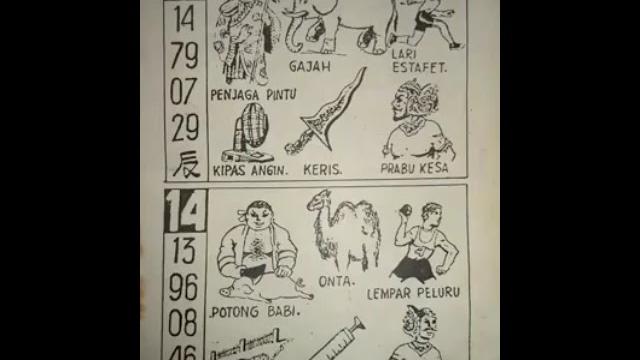 14
79
07
29
辰
GAJAH
LARI
ESTAFET.
PENJAGA PINTU
KIPAS ANGIN.
KERIS.
PRABU KESA
14
13
96
08
46
POTONG BABI.
ONTA.
LEMPAR PELURU